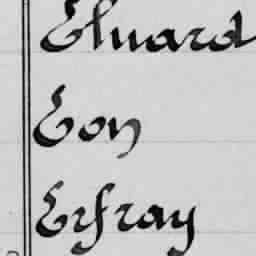 Eluard
Eon
Erfray